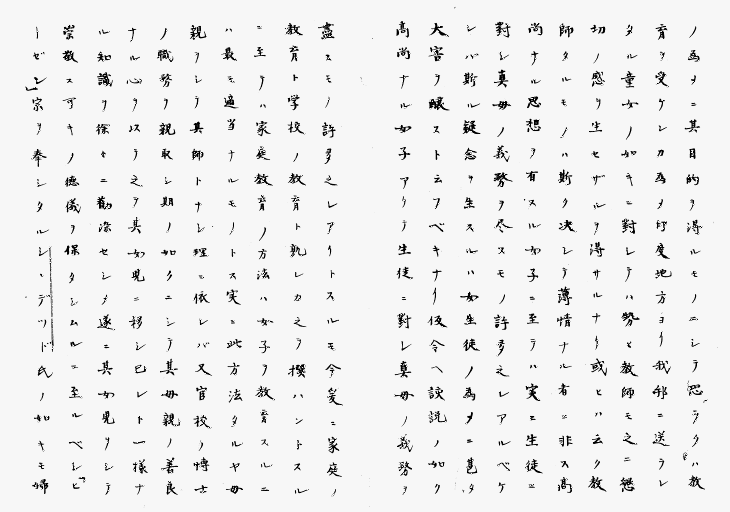 ノ為メニ其目的ヲ得ルモノニシテ恐ラクハ教
育ヲ受ケンカ為メ印度地方ヨリ我邦ニ送ラレ
タル童女ノ如キニ対シテハ勢ヒ教師モ之ニ懇
切ノ感ヲ生セザルヲ得サルナリ或ヒハ云ク教
師タルモノハ斯ク決シテ薄情ナル者ニ非ス高
尚ナル思想ヲ有スル女子ニ至テハ実ニ生徒ニ
対シ真母ノ義務ヲ尽スモノ許多之レアルベケ
レバ斯ル疑念ヲ生スルハ女生徒ノ為メニ甚タ
大害ヲ醸スト云フベキナリ仮令ヘ説ノ如ク
高尚ナル女子アリテ生徒ニ対シ真母ノ義務ヲ
盡スモノ許多之レアリトスルモ今爰ニ家庭ノ
教育ト学校ノ教育ト孰レカ之ヲ撰ハントスル
ニ至テハ家庭教育ノ方法ハ女子ヲ教育スルニ
ハ最モ適当ナルモノトス実ニ此方法タルヤ母
親ヲシテ其師トナシ理ニ依レバ又官校ノ博士
ノ職務ヲ親取シ期ノ如クニシテ其母親ノ善良
ナル心ヲ以テ之ヲ其女児ニ移シ已レト一様ナ
ル知識ヲ徐々ニ勧染セシメ遂ニ其女児ヲシテ
崇敬ス可キノ徳儀ヲ保タシムルニ至ルベシヒ
ーゼン」宗ヲ奉シタルシ・デッド氏ノ如キモ婦